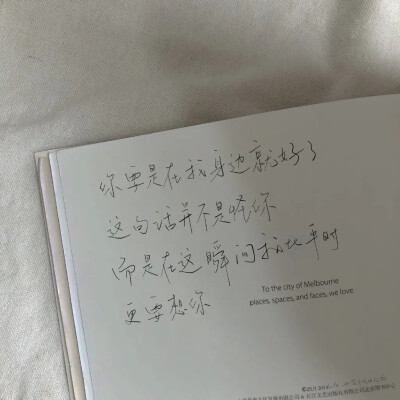 你要是在我身边就好了
这句话并不是怪你
而是在这瞬间我比平时
更要想你
To the city of Melbourne
places, spaces, and faces, we love.